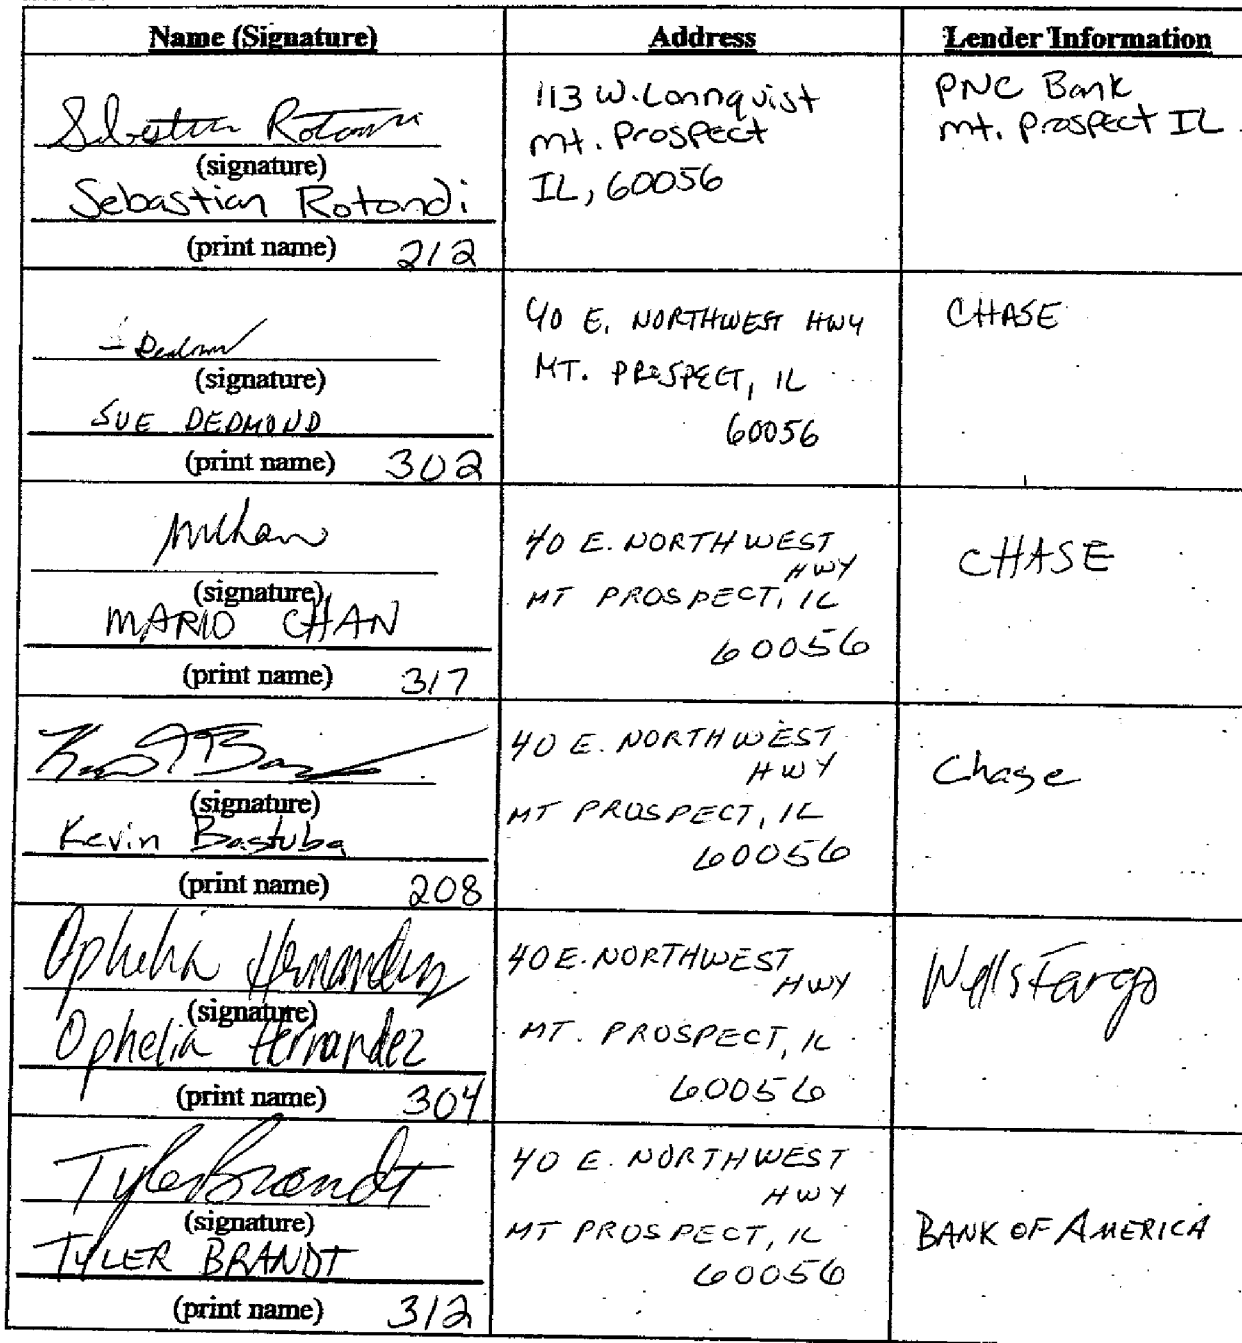 Name (Signature) Address Lender Information
Sebastian Rotondi
(signature)
Sebastian Rotondi
(print name) 212
113 W. Lonnquist
mt. Prospect
IL, 60056
PNC Bank
mt. prospect IL
Dedmond
(signature)
SUE DEDMOND
(print name) 302
40 E. NORTHWEST HWY
MT. PROSPECT, IL
60056
CHASE
MChan
(signature)
MARIO CHAN
(print name) 317
40 E. NORTHWEST
HWY
MT PROSPECT, IL
60056
CHASE
(signature)
Kevin Bastuba
(print name) 208
40 E. NORTHWEST
HWY
MT PROSPECT, IL
60056
Chase
Ophelia Hernandez
(signature)
Ophelia Hernandez
(print name) 304
40 E. NORTHWEST
HWY
MT. PROSPECT, IL
60056
Wells Fargo
Tyler Brandt
(signature)
TYLER BRANDT
(print name) 312
40 E. NORTHWEST
HWY
MT PROSPECT, IL
60056
BANK OF AMERICA